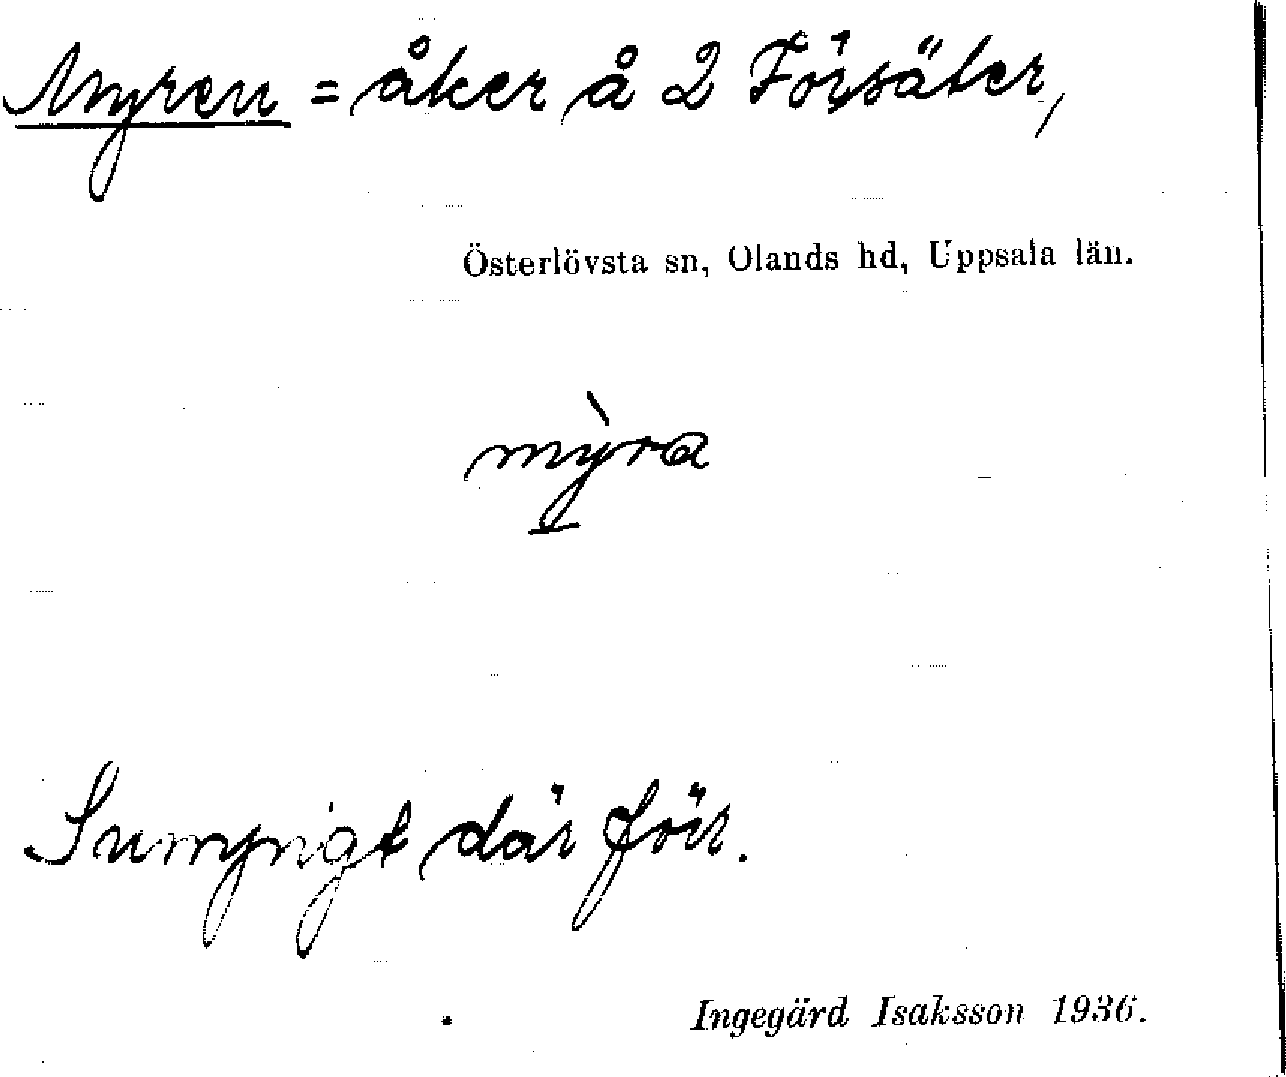 Myren = åker å 2 Försäter,
Österlövsta sn, Olands hd, Uppsala län.
mỳra
Sumpigt där förr.
Ingegärd Isaksson 1936.